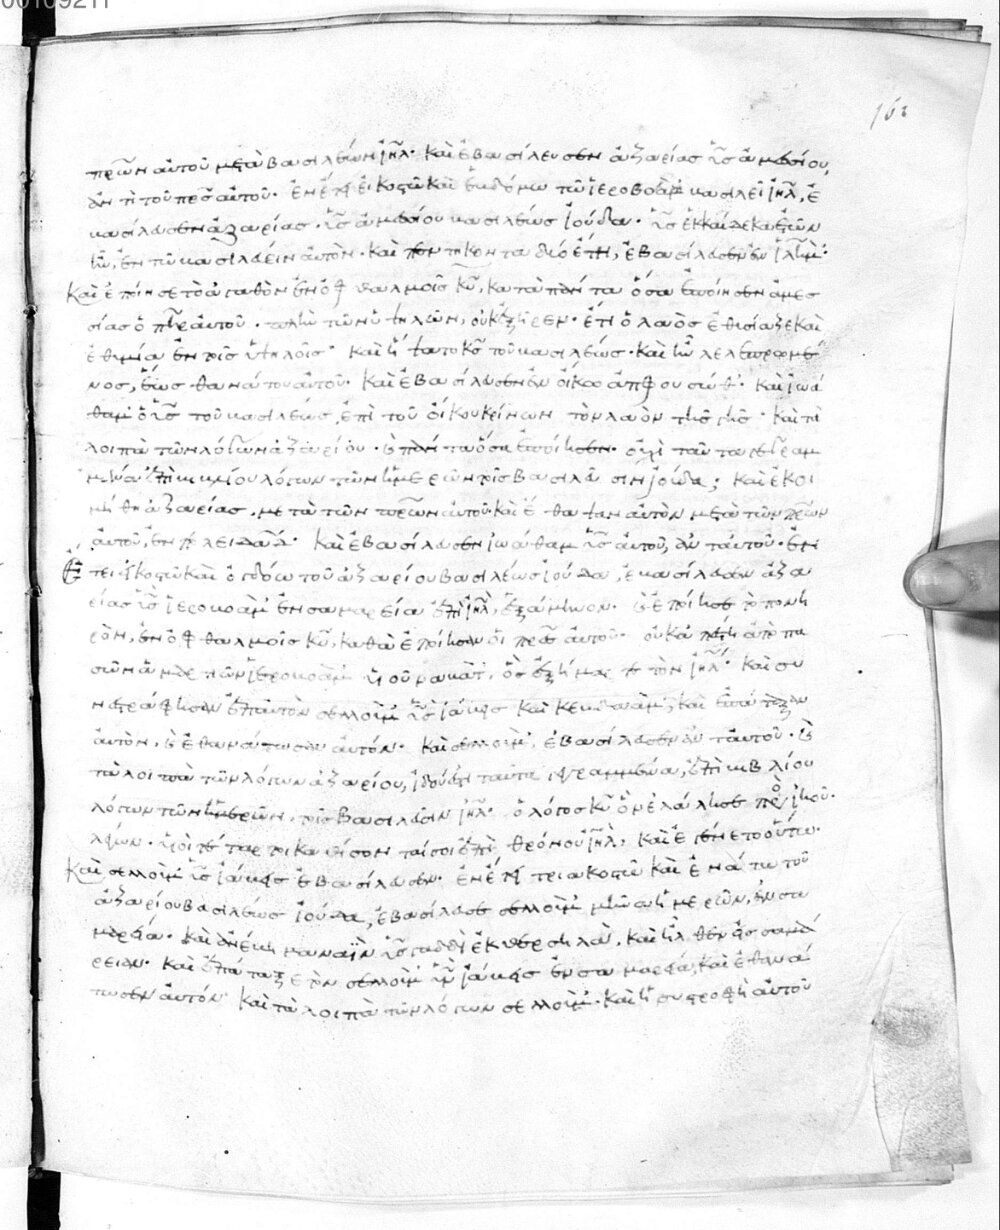 πρων αὐτοῦ μετὰ βασιλέων ἰηλ. Καὶ ἐβασίλευσεν ἀζαρίας υἱς ἀμεσίου,
ἀντὶ τοῦ πρς αὐτοῦ. ἐν ἔτει εἰκοστῶ καὶ ἑβδόμω τῶ ἱεροβοὰμ βασιλεῖ ἰηλ, ἐ
βασίλευσεν ἀζαρίας. υἱς ἀμεσίου βασιλέως ἰούδα. υἱς ἑκκαίδεκα ἐτῶν
ἦν, ἐν τῶ βασιλεύειν αὐτὸν. καὶ πεντήκοντα δύο ἔτη, ἐβασίλευσεν ἐν ἱλημ.
Καὶ ἐποίησε τὸ ἀγαθὸν ἐν ὀφθαλμοῖς κυ, κατὰ πάντα ὅσα ἐποίησεν ἀμεσ
σίας ὁ πηρ αὐτοῦ. πλὴν τῶν ὑψηλῶν, οὐκ ἐξῆρεν. ἔτι ὁ λαὸς ἐθυσίαζε καὶ
ἐθυμία ἐν τοῖς ὑψηλοῖς. Καὶ ἥψατο κς τοῦ βασιλέως. καὶ ἦν λελεπρωμέ
νος, ἕως θανάτου αὐτοῦ. καὶ ἐβασίλευσεν ἐν οἴκω ἀπφουσώθ. καὶ ἰωά
θαμ ὁ υἱς τοῦ βασιλέως, ἐπὶ τοῦ οἴκου κρίνων τὸν λαὸν τῆς γῆς. Καὶ τὰ
λοιπὰ τῶν λόγων ἀζαρίου. καὶ πάντα ὅσα ἐποίησεν. οὐχὶ ταῦτα γεγραμ
μένα ἐπὶ βιβλίου λόγων τῶν ἡμερῶν τοῖς βασιλεῦσιν ἰούδα; Καὶ ἐκοι
μήθη ἀζαρίας, μετὰ τῶν πρων αὐτοῦ. καὶ ἔθαψαν αὐτὸν μετὰ τῶν πρων
αὐτοῦ, ἐν πόλει δαδ. Καὶ ἐβασίλευσεν ἰωάθαμ υἱς αὐτοῦ, ἀντ αὐτοῦ. ἐν
ἔτει εἰκοστῶ καὶ ὀγδόω τοῦ ἀζαρίου βασιλέως ἰούδα, ἐβασίλευσεν ἀζα
ρίας υἱς ἱεροβοὰμ ἐν σαμαρεία ἐπὶ ἰηλ, ἑξάμηνον. καὶ ἐποίησε τὸ πονη
ρὸν, ἐν ὀφθαλμοῖς κυ, καθὰ ἐποίησαν οἱ πρες αὐτοῦ. οὐκ ἀπέστη ἀπὸ πα
σῶν ἁμαρτιῶν ἱεροβοὰμ υἱοῦ ναβὰτ, ὃς ἐξήμαρτε τὸν ἰηλ. Καὶ συ
νεστράφησαν ἐπ αὐτὸν σελλοὶμ υἱς ἰάβης καὶ κεβλαὰμ, καὶ ἐπάταξαν
αὐτὸν, καὶ ἐθανάτωσαν αὐτόν. καὶ σελλοὶμ, ἐβασίλευσεν ἀντ αὐτοῦ. καὶ
τὰ λοιπὰ τῶν λόγων ἀζαρίου, ἰδού ἐστι ταῦτα γεγραμμένα, ἐπὶ βιβλίου
λόγων τῶν ἡμερῶν, τοῖς βασιλεῦσιν ἰηλ. ὁ λόγος κυ ὃν ἐλάλησε πρὸς ἰηοῦ.
λέγων. υἱοὶ τέταρτοι καθίσονταί σοι ἐπὶ θρόνου ἰηλ, καὶ ἐγένετο οὕτω.
Καὶ σελλοὶμ υἱς ἰάβης ἐβασίλευσεν. ἐν ἔτει τριακοστῶ καὶ ἐνάτω τοῦ
ἀζαρίου βασιλέως ἰούδα, ἐβασίλευσε σελλοὶμ μῆνα ἡμερῶν, ἐν σα
μαρεία. Καὶ ἀνέβη μαναὴν υἱς γαδδὶ ἐκ θερσηλὰ, καὶ ἦλθεν εἰς σαμά
ρειαν. καὶ ἐπάταξε τὸν σελλοὶμ υἱν ἰάβης ἐν σαμαρεία, καὶ ἐθανά
τωσεν αὐτόν. Καὶ τὰ λοιπὰ τῶν λόγων σελλοὶμ. καὶ ἡ συστροφὴ αὐτοῦ